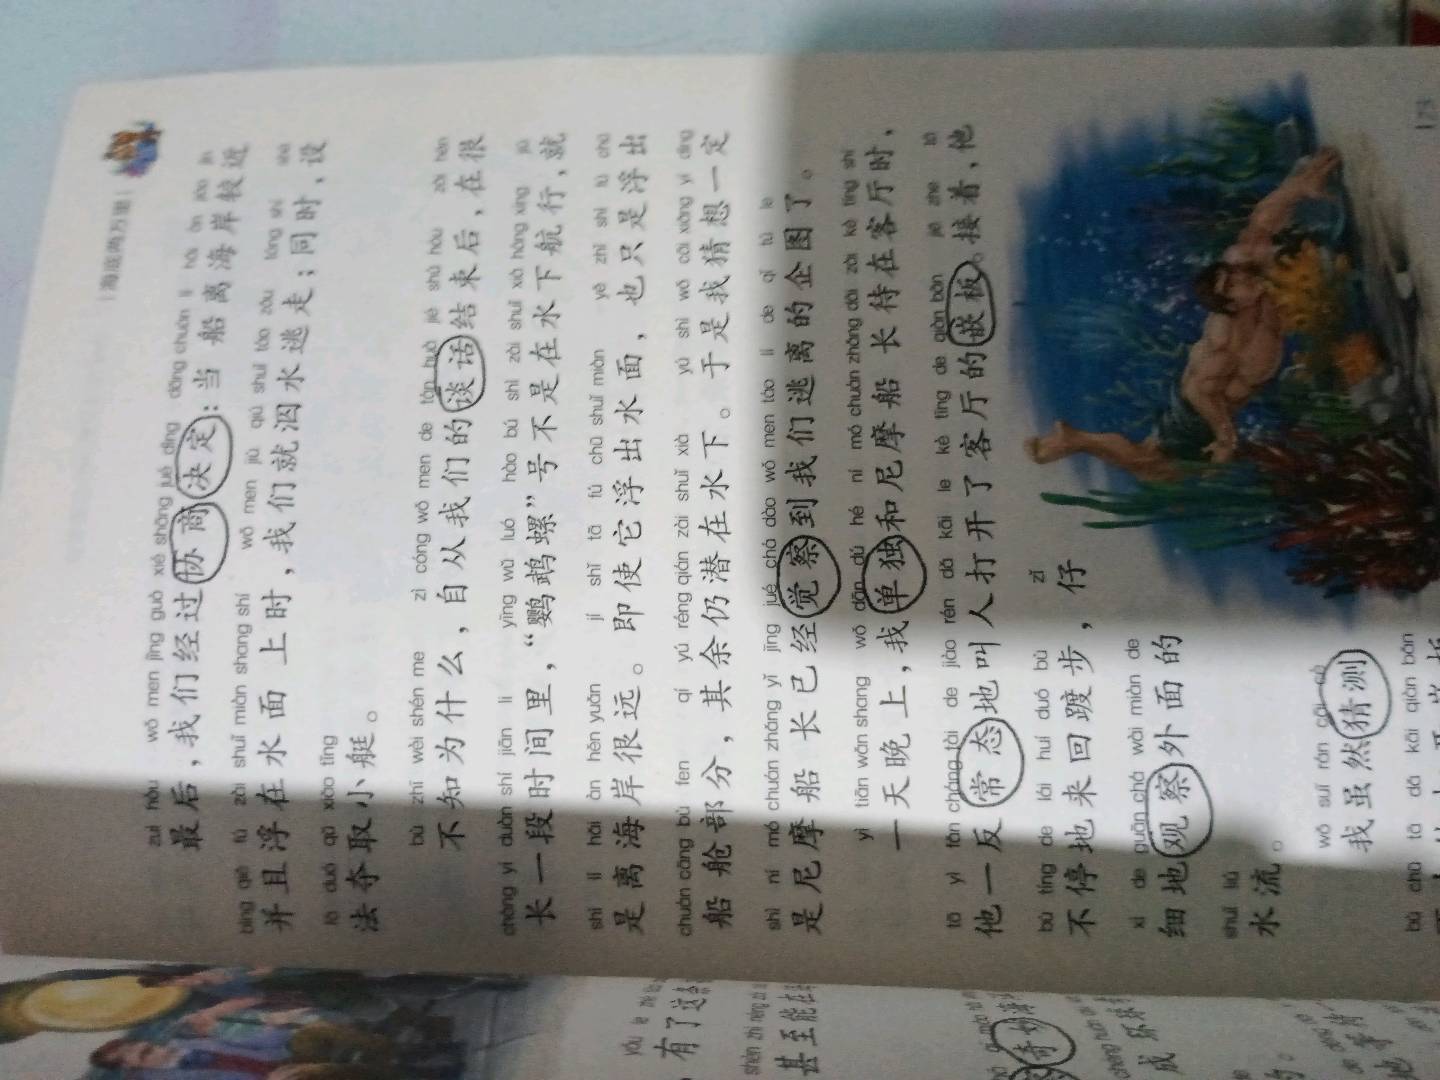 |海底两万里|
zuì hòu wǒ men jīng guò xié shāng jué dìng dāng chuán lí hǎi àn jiào jìn
最后，我们经过协商决定：当船离海岸较近
bìng qiě fú zài shuǐ miàn shang shí wǒ men jiù qiú shuǐ táo zǒu tóng shí shè
并且浮在水面上时，我们就泅水逃走；同时，设
fǎ duó qǔ xiǎo tǐng
法夺取小艇。
bù zhī wèi shén me zì cóng wǒ men de tán huà jié shù hòu zài hěn
不知为什么，自从我们的谈话结束后，在很
cháng yí duàn shí jiān li yīng wǔ luó hào bú shì zài shuǐ xià háng xíng jiù
长一段时间里，“鹦鹉螺”号不是在水下航行，就
shì lí hǎi àn hěn yuǎn jí shǐ tā fú chū shuǐ miàn yě zhǐ shì lù chū
是离海岸很远。即使它浮出水面，也只是浮出
chuán cāng bù fen qí yú réng qián zài shuǐ xià yú shì wǒ cāi xiǎng yí dìng
船舱部分，其余仍潜在水下。于是我猜想一定
shì ní mó chuán zhǎng yǐ jīng jué chá dào wǒ men táo lí de qǐ tú le
是尼摩船长已经觉察到我们逃离的企图了。
yì tiān wǎn shang wǒ dān dú hé ní mó chuán zhǎng dāi zài kè tīng shí
一天晚上，我单独和尼摩船长待在客厅时，
tā yì fǎn cháng tài de jiào rén dǎ kāi le kè tīng de qiàn bǎn jiē zhe tā
他一反常态地叫人打开了客厅的嵌板。接着，他
bù tíng de lái huí duó bù zǐ
不停地来回踱步，仔
xì de guān chá wài miàn de
细地观察外面的
shuǐ liú
水流。
wǒ suī rán cāi cè
我虽然猜测
bù chū tā dǎ kāi qiàn bǎn
173
有了这条
甚至能在
奇妙
成